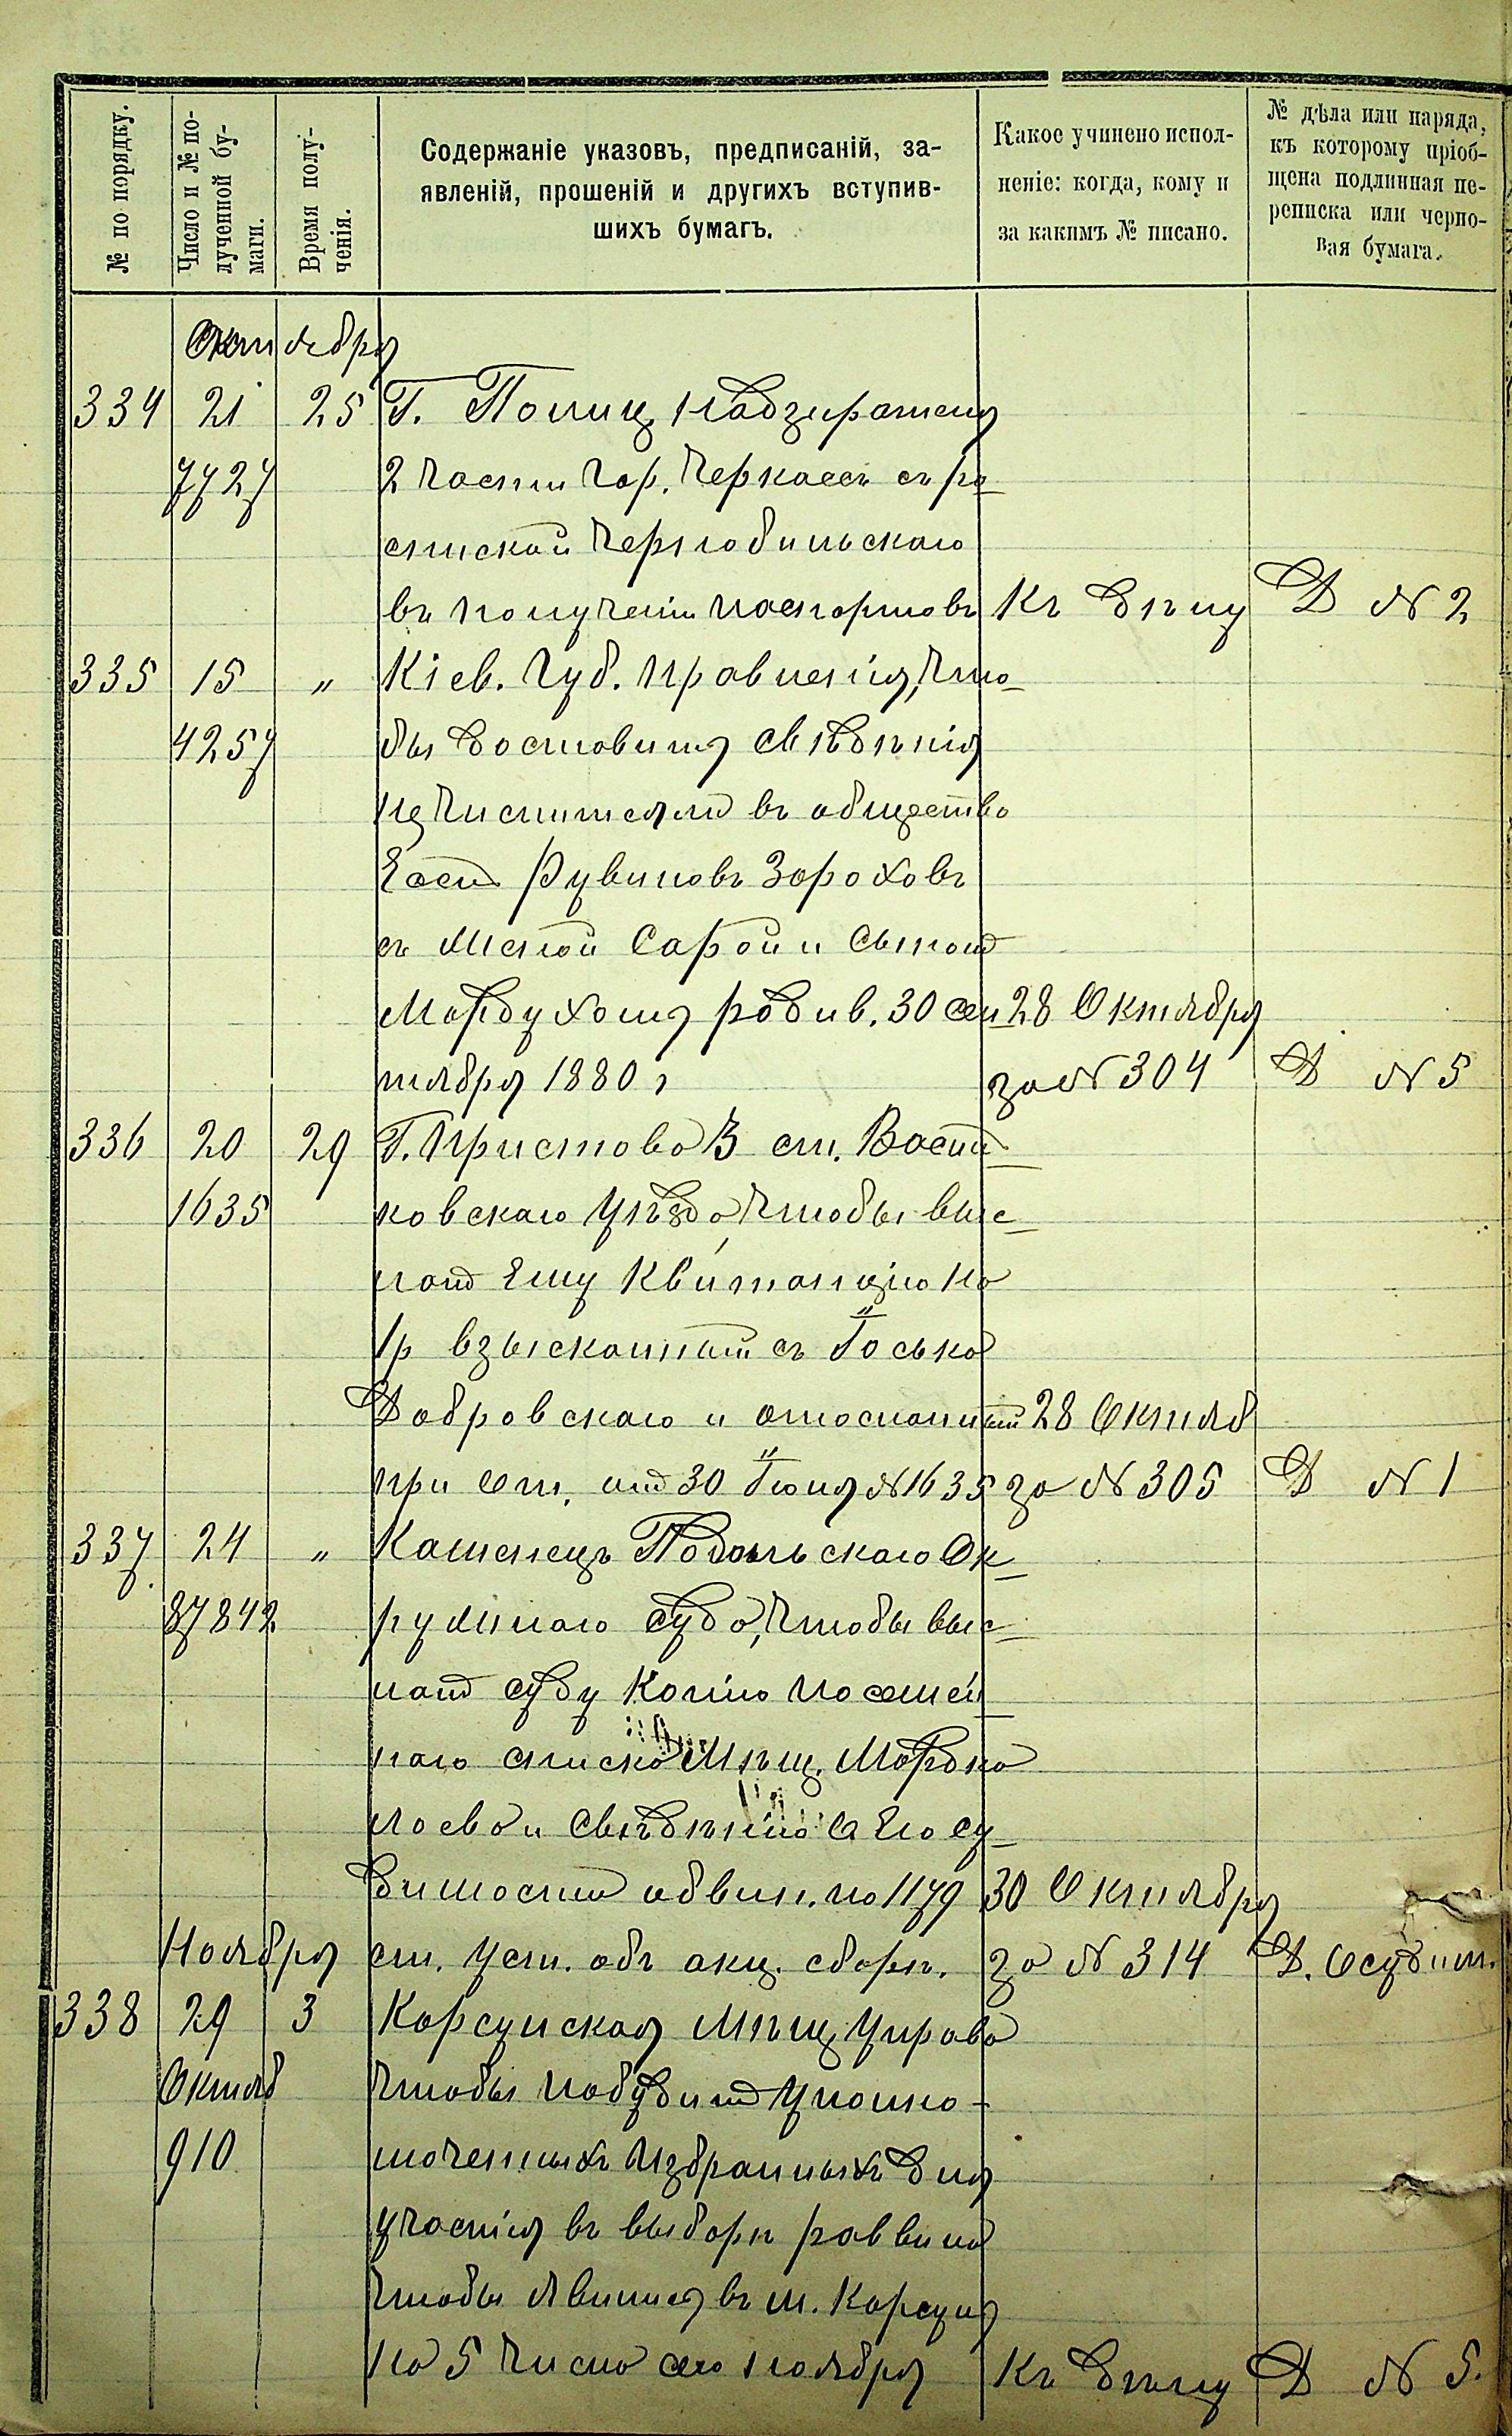 № по порядку.
Число и № по-
лученной бу-
маги.
Время полу-
ченія.
Содержаніе указовъ, предписаній, за-
явленій, прошеній и другихъ вступив-
шихъ бумагъ.
Какое учинено испол-
неніе: когда, кому и
за какимъ № писано.
№ дѣла или наряда,
къ которому пріоб-
щена подлинная пе-
реписка или черно-
вая бумага.
Октября
334 21 25 Г. Полиц. Надзирателя
7727 2 части Гор. Черкассъ съ ро-
спиской Чернобильскаго
въ полученіи паспортовъ Къ дѣлу Д № 2
335 15 „ Кіев. Губ. Правленія, что-
4257 бы доставить свѣдѣнія
причислить ли въ общество
Рувиновъ Зороховъ
съ женой Сарой и сыном
Мордухомъ родив. 30 Сен 28 Октября
тября 1880 г за № 304 Д № 5
336 20 29 Г. Пристава 3 ст. Василь
1635 ковскаго уѣзда, чтобы выс-
лать ему Квитанцію на
1р взысканный съ Іоська
Добровскаго и отосланный 28 Октяб
при от. от 30 Іюня № 1635 за № 305 Д № 1
337 24 „ Каменецъ Подольскаго Ок-
37842 ружнаго Суда, чтобы выс-
лать суду Копію посемей
наго списка Мѣщ. Мордка
и свѣдѣнію о его су-
димости обвин. по 1179 30 Октября
Ноября ст. Уст. объ акц. сборѣ. за № 314 Д. О судим.
338 29 3 Корсунская Мѣщ. Управа
Октяб чтобы побудить уполно-
910 моченныхъ избранныхъ для
участія въ выборѣ раввина
чтобы явились въ м. Корсунь
на 5 число сего ноября Къ дѣлу Д № 5.